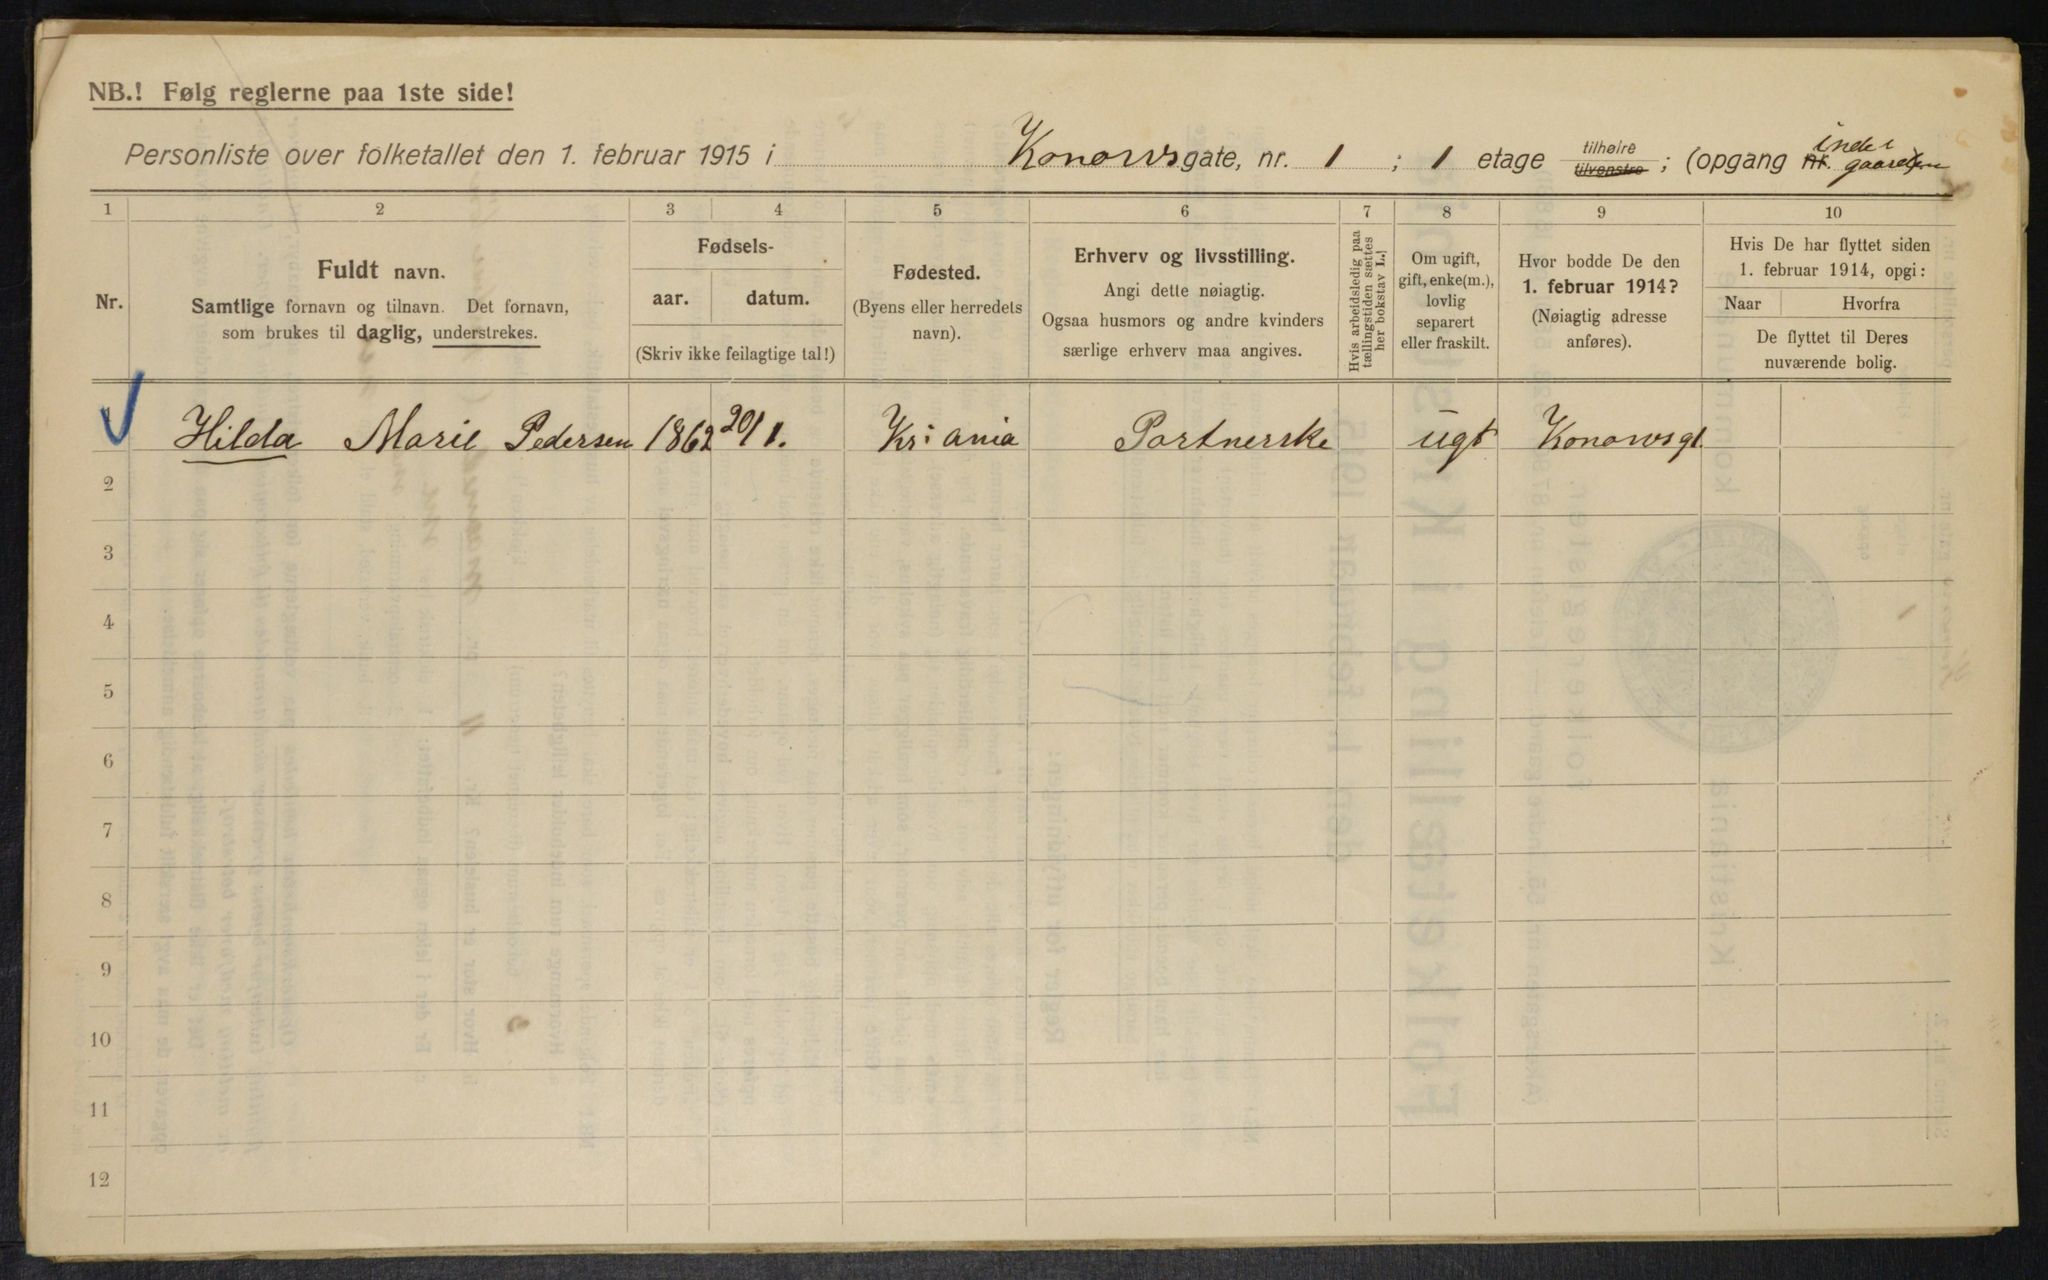 NB.! Følg reglerne paa 1ste side!
Personliste over folketallet den 1. februar 1915 i Konowsgate, nr. 1 ; 1 etage tilhøire tilvenstre ; (opgang nr. inde i gaarden
1 2 3 4 5 6 7 8 9 10
Nr.
Fuldt navn.
Samtlige fornavn og tilnavn. Det fornavn,
som brukes til daglig, understrekes.
Fødsels-
aar. datum.
(Skriv ikke feilagtige tal!)
Fødested.
(Byens eller herredets
navn).
Erhverv og livsstilling.
Angi dette nøiagtig.
Ogsaa husmors og andre kvinders
særlige erhverv maa angives.
Hvis arbeidsledig paa
tællingstiden sættes
her bokstav L.
Om ugift,
gift, enke(m.),
lovlig
separert
eller fraskilt.
Hvor bodde De den
1. februar 1914?
(Nøiagtig adresse
anføres).
Hvis De har flyttet siden
1. februar 1914, opgi:
Naar Hvorfra
De flyttet til Deres
nuværende bolig.
Hilda Marie Pedersen 1862 20/1. Kr:ania Portnerske ugt Konowsgt
2
3
4
5
6
7
8
9
10
11
12